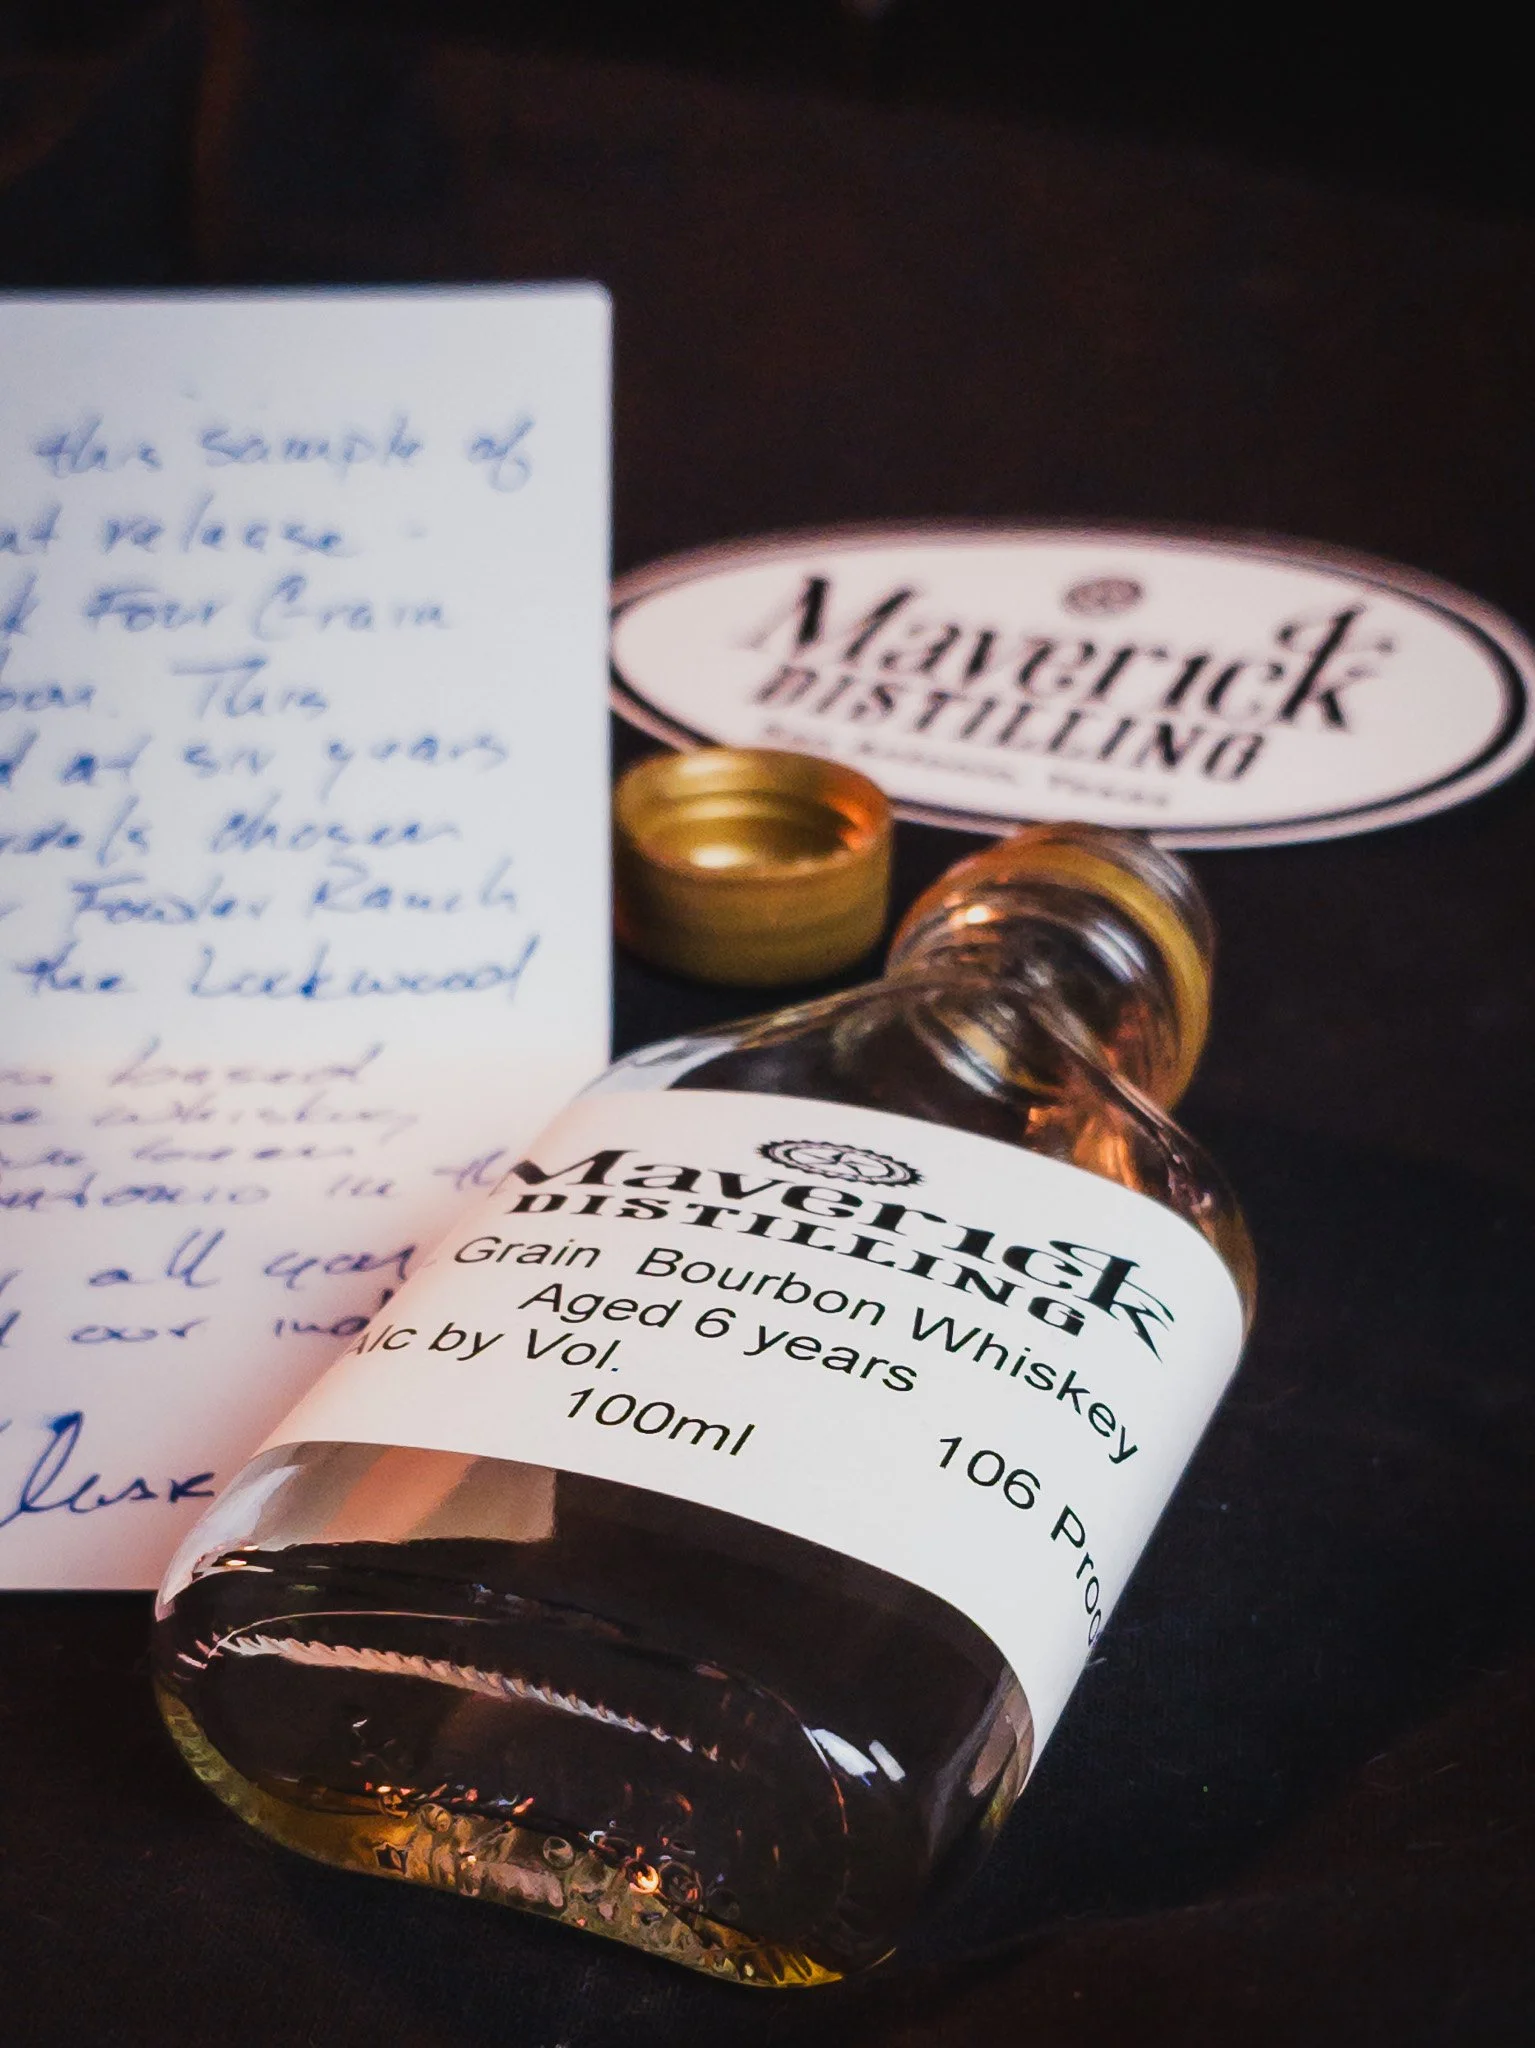 this sample of
release -
Four Grain
This
at six years
chosen
Fowler Ranch
the Lockwood
based
whiskey
been
in th
all year
our
Maverick
DISTILLING
San Antonio, Texas
Maverick
DISTILLING
Grain Bourbon Whiskey
Aged 6 years
Alc by Vol.
106 Proo
100ml